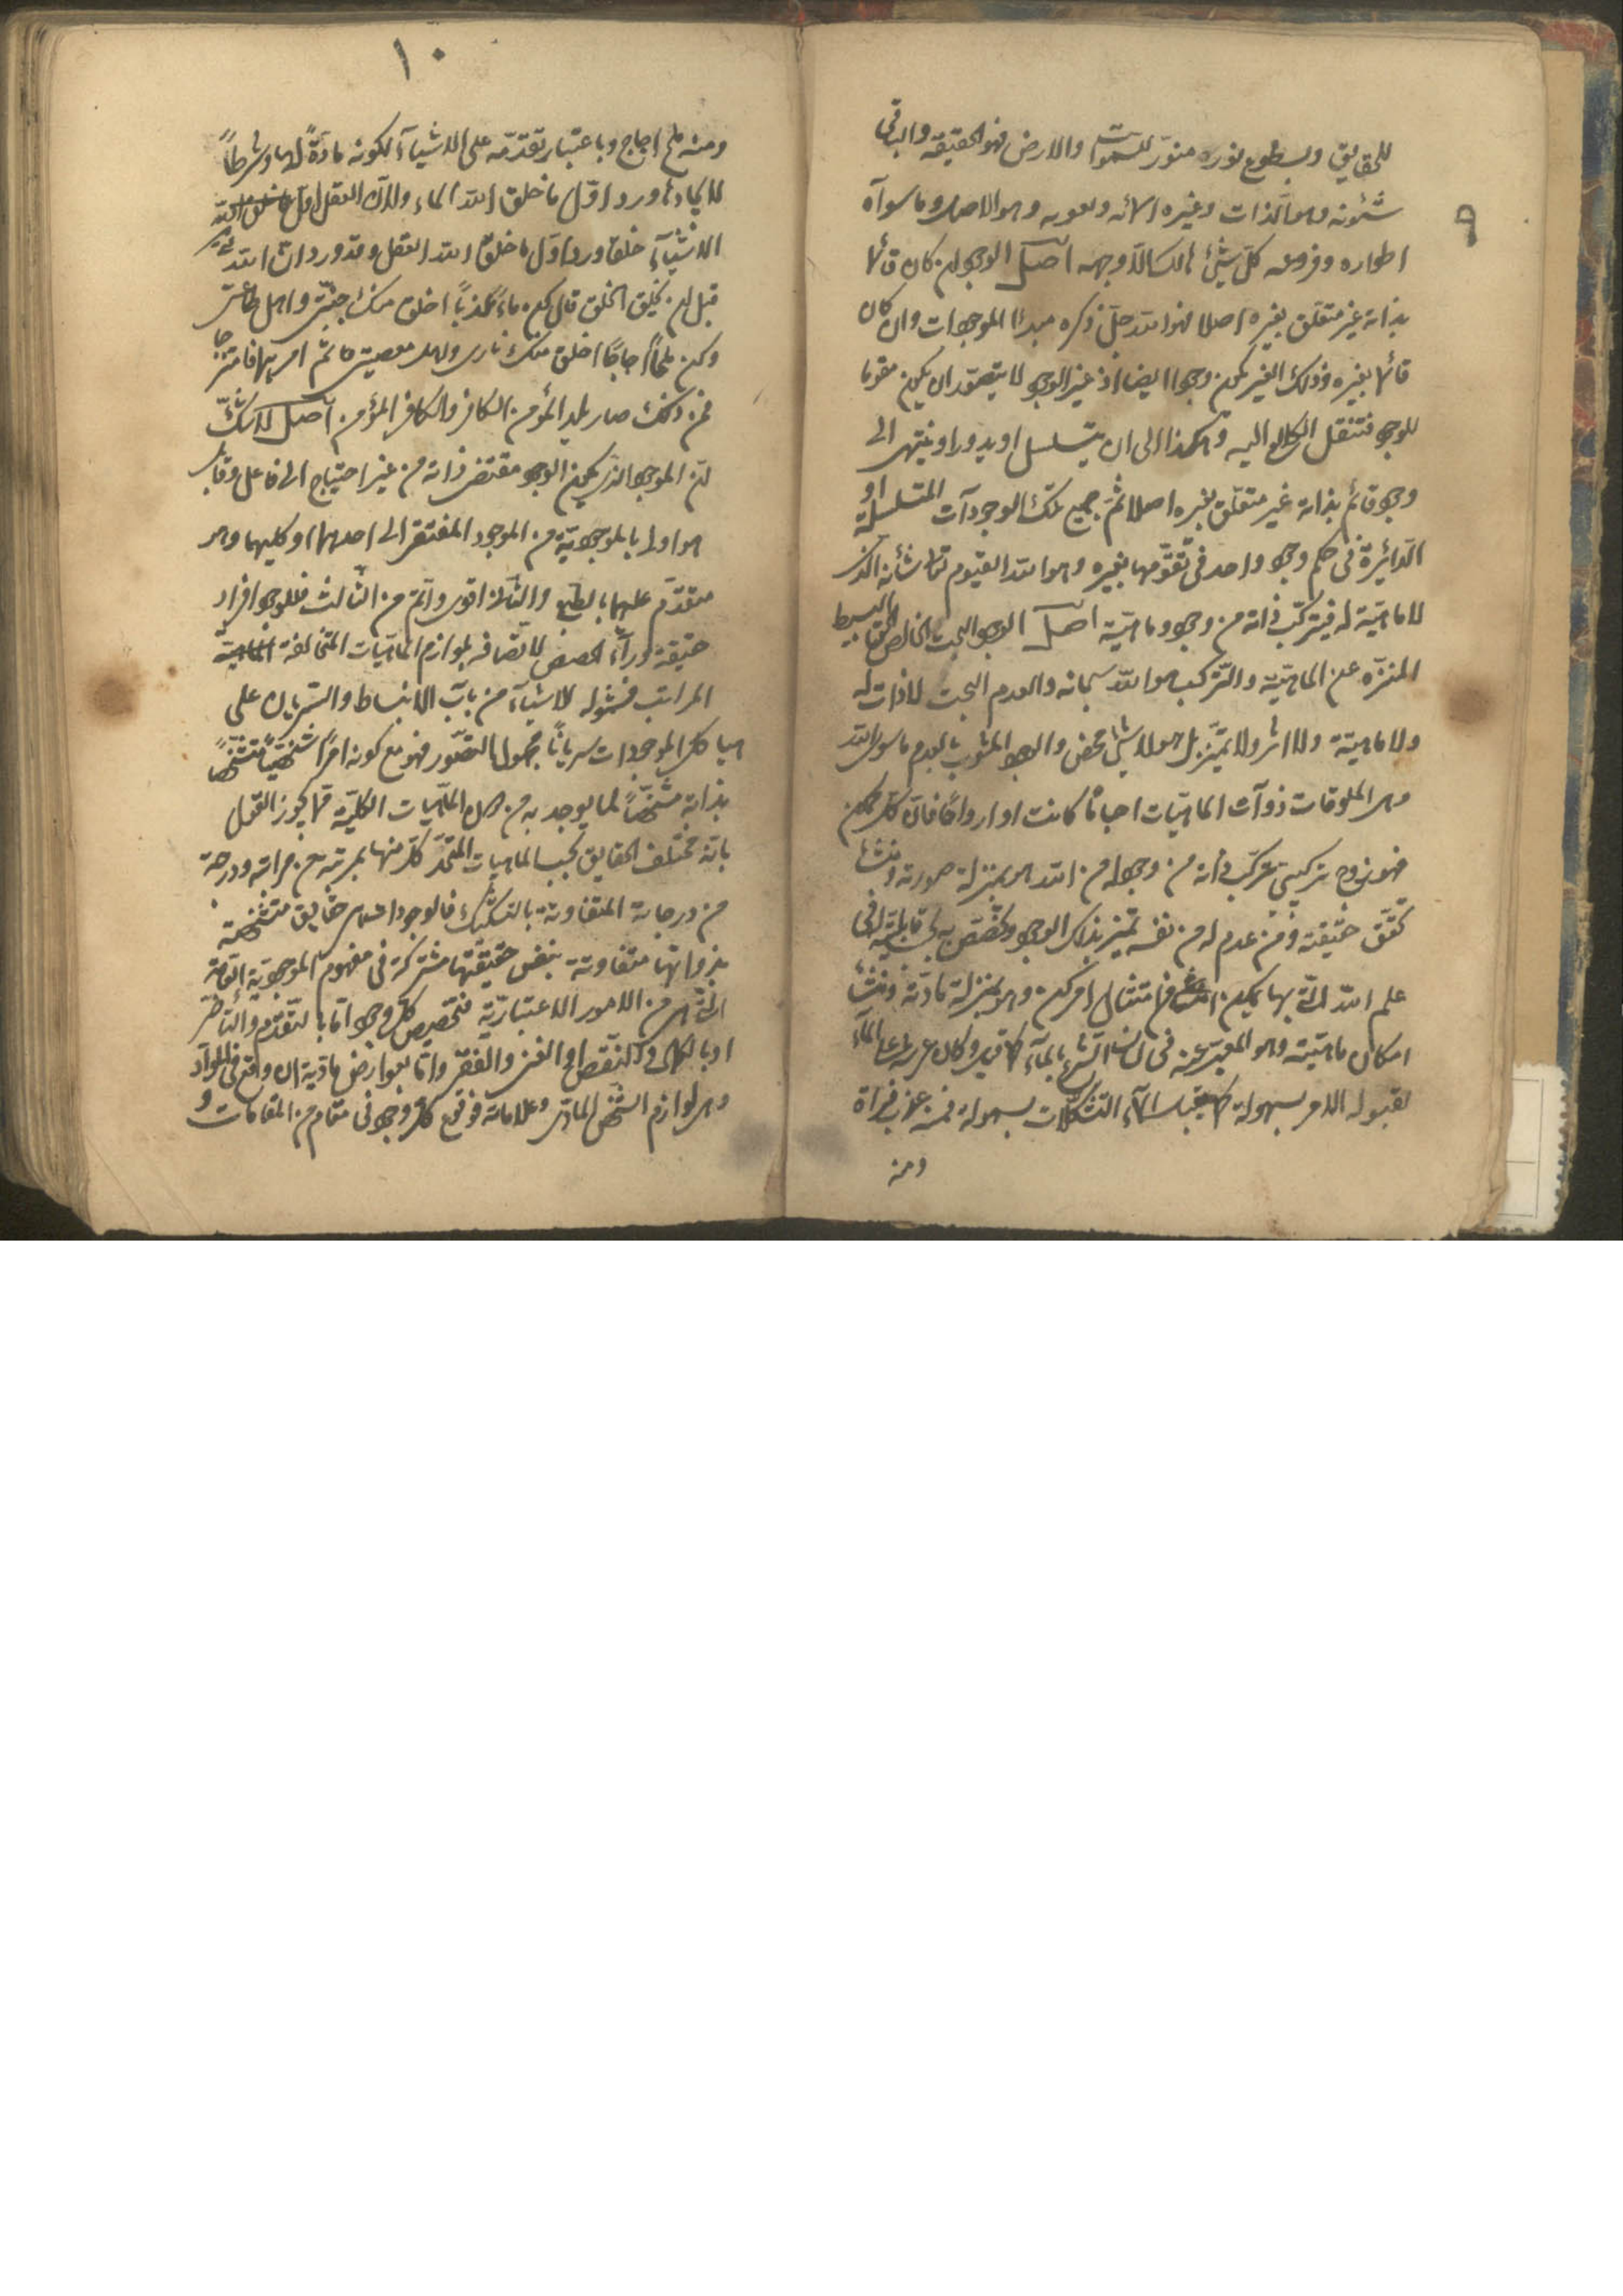 ٩
للحقايق وبسطوع نوره منور للسموات والارض فهو الحقيقة والباقى
شئونه وهو الذات وغيره اسمائه ونعوته وهو الاصل وما سواه
اطواره وفروعه كل شئ هالك الا وجهه اصل الوجود ان كان قائما
بذاته غير متعلق بغيره اصلا فهو الله جل ذكره مبدأ الموجودات وان كان
قائما بغيره وذلك الغير يكون وجودا ايضا اذ غير الوجود لا يتصور ان يكون مقوما
للوجود فننقل الكلام اليه وهكذا الى ان يتسلسل او يدور او ينتهى الى
وجود قائم بذاته غير متعلق بغيره اصلا ثم جميع تلك الوجودات المتسلسلة او
الدائرة فى حكم وجود واحد فى تقومها بغيره وهو الله القيوم تعالى شأنه الذى
لا ماهية له فيتركب ذاته من وجود وماهية اصل الوجود البحت الخالص البسيط
المنزه عن الماهية والتركيب هو الله سبحانه والعدم البحت لا ذات له
ولا ماهية ولا اثر ولا تميز بل هو لا شئ محض والوجود المشوب بالعدم ما سوى الله
وهى المخلوقات ذوات الماهيات اجساما كانت او ارواحا فان كل ممكن
فهو زوج تركيبى تركب ذاته من وجود له من الله هو بمنزلة صورته ومنشأ
تحقق حقيقته ومن عدم له من نفسه تميز بذلك الوجود وتخصص به بحسب قابليته له فى
علم الله التى بها يمكن امتثال امر كن وهو بمنزلة مادته ومنشأ
امكان ماهيته وهو المعبر عنه فى لسان الشرع بالماء كما قيل وكان عرشه على الماء
لقبوله الامر بسهولة كما يقبل الماء التشكلات بسهولة فمنه عذب فرات
ومنه
١٠
ومنه ملح اجاج وباعتبار تقدمه على الاشياء لكونه مادة لها وشرطا
لايجادها ورد اول ما خلق الله الماء ولان العقل اول
الاشياء خلقا ورد اول ما خلق الله العقل وقد ورد ان الله تعالى
قبل ان يخلق الخلق قال كن ماء عذبا اخلق منك جنتى واهل طاعتى
وكن ملحا اجاجا اخلق منك نارى واهل معصيتى ثم امرهما فامتزجا
فمن ذلك صار يلد المؤمن الكافر والكافر المؤمن اصل لا شك
ان الموجود الذى يكون الوجود مقتضى ذاته من غير احتياج الى فاعل وقابل
هو اولى بالموجودية من الموجود المفتقر الى احدهما او كليهما وهو
متقدم عليهما بالطبع والثانى اقوى واتم من الثالث فللوجود افراد
حقيقة وراء الحصص لاتصافه بلوازم الماهيات المتخالفة
المراتب فشموله للاشياء من باب الانبساط والسريان على
هياكل الموجودات سريانا مجهول التصور فهو مع كونه امرا شخصيا متشخصا
بذاته مشخصا لما يوجد به من الماهيات الكلية مما يجوز القول
بانه مختلف الحقايق بحسب الماهيات المتحد كل منها بمرتبة من مراتبه ودرجة
من درجاته المتفاوتة بالتشكيك فالوجودات حقايق متشخصة
بذواتها متفاوتة بنفس حقيقتها مشتركة فى مفهوم الموجودية العامة
التى هى من الامور الاعتبارية فتخصيص كل وجود اما بالتقدم والتأخر
او بالكمال والنقص او الغنى والفقر واما بعوارض مادية ان وقع فى المواد
وهى لوازم الشخص المادى وعلاماته فوقوع كل وجود فى مقام من المقامات و